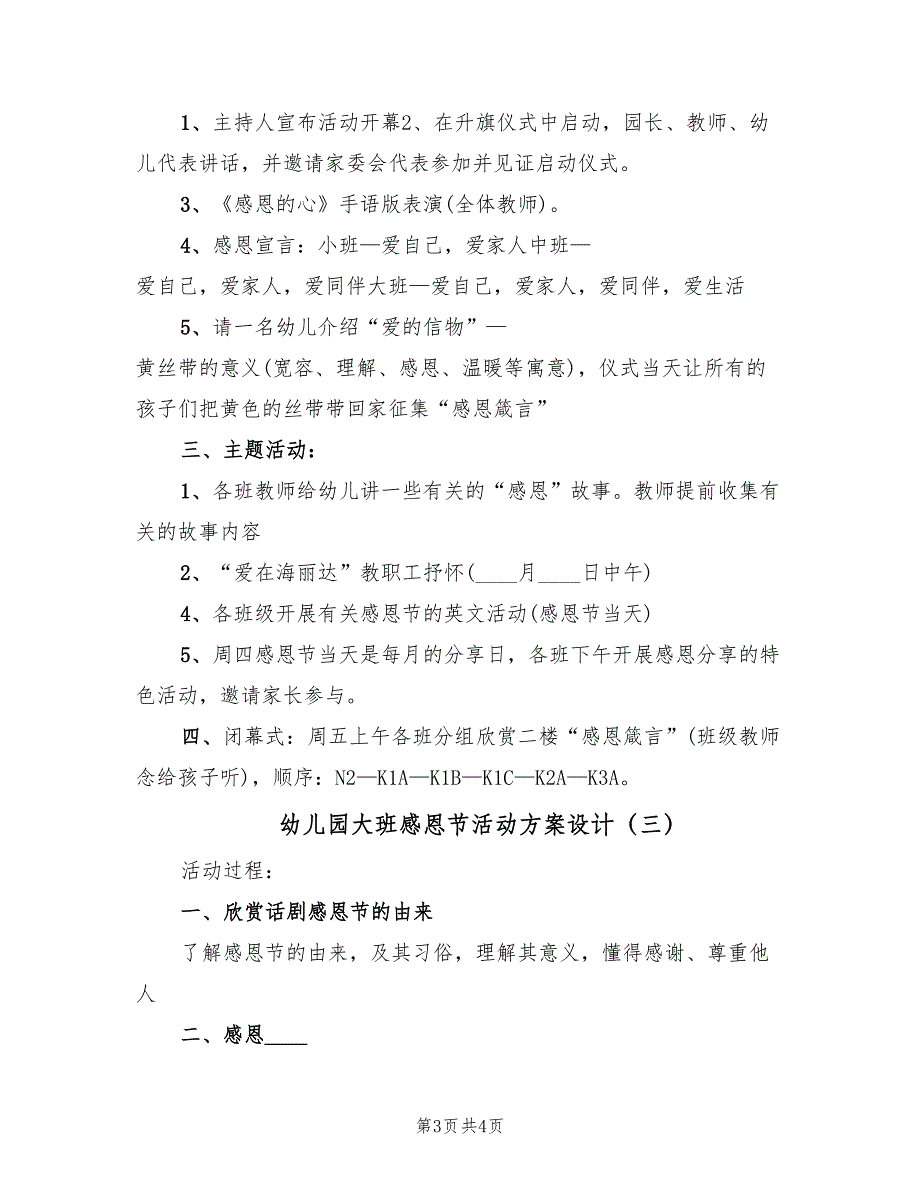 1、主持人宣布活动开幕2、在升旗仪式中启动，园长、教师、幼
儿代表讲话，并邀请家委会代表参加并见证启动仪式。
3、《感恩的心》手语版表演(全体教师)。
4、感恩宣言：小班—爱自己，爱家人中班—
爱自己，爱家人，爱同伴大班—爱自己，爱家人，爱同伴，爱生活
5、请一名幼儿介绍“爱的信物”—
黄丝带的意义(宽容、理解、感恩、温暖等寓意)，仪式当天让所有的
孩子们把黄色的丝带带回家征集“感恩箴言”
三、主题活动：
1、各班教师给幼儿讲一些有关的“感恩”故事。教师提前收集有
关的故事内容
2、“爱在海丽达”教职工抒怀(____月____日中午)
4、各班级开展有关感恩节的英文活动(感恩节当天)
5、周四感恩节当天是每月的分享日，各班下午开展感恩分享的特
色活动，邀请家长参与。
四、闭幕式：周五上午各班分组欣赏二楼“感恩箴言”(班级教师
念给孩子听)，顺序：N2—K1A—K1B—K1C—K2A—K3A。
幼儿园大班感恩节活动方案设计（三）
活动过程：
一、欣赏话剧感恩节的由来
了解感恩节的由来，及其习俗，理解其意义，懂得感谢、尊重他
人
二、感恩____
第3页共4页